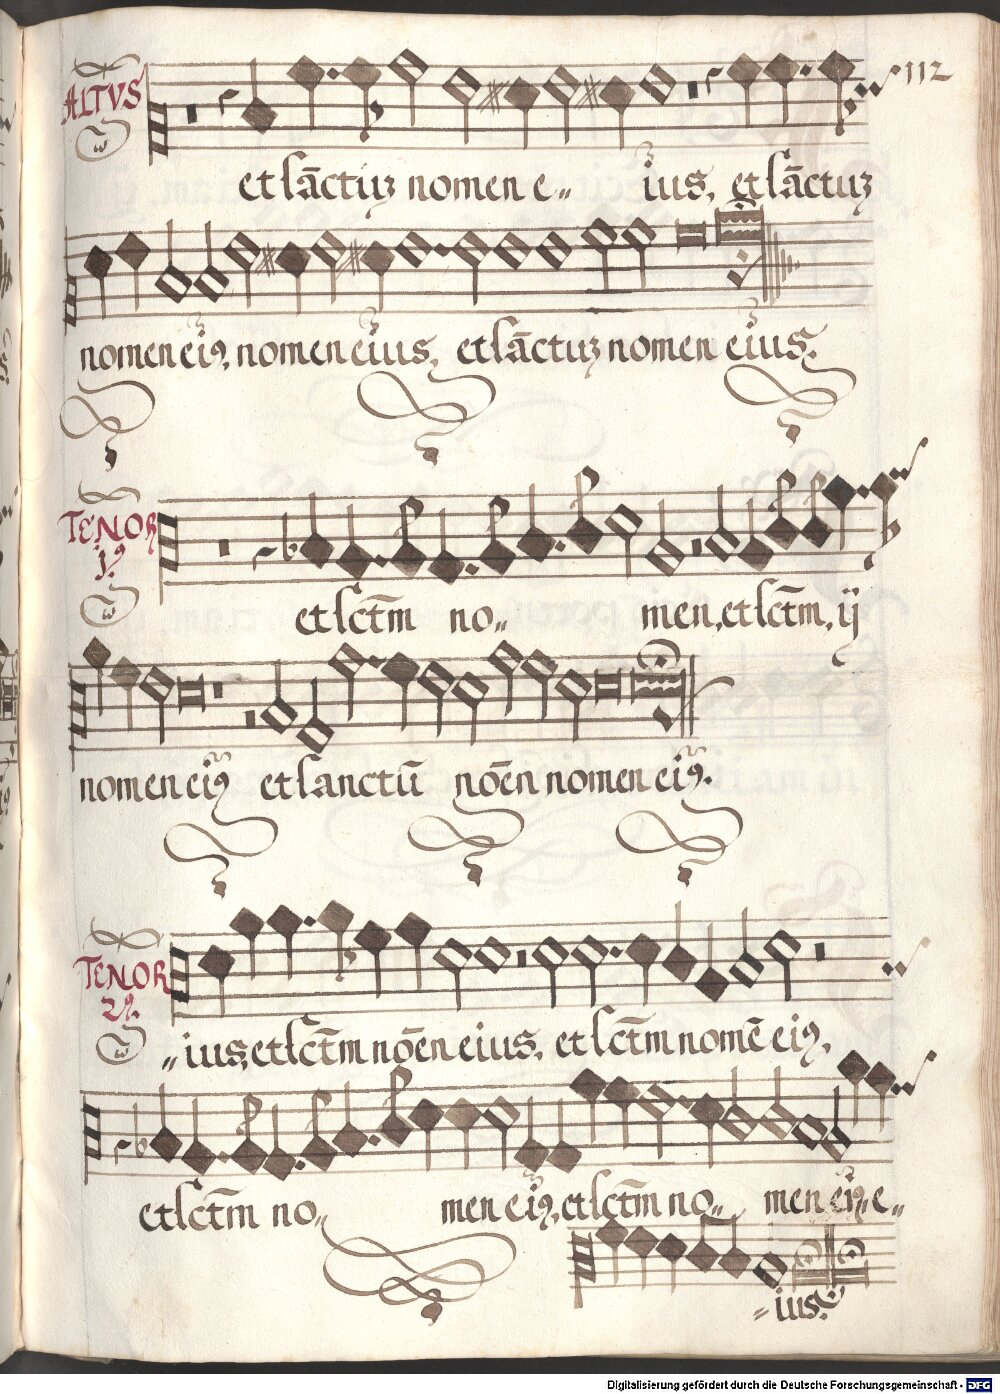 ALTVS
112
et sāctuz nomen e-- ius, et sāctuz
nomen eiꝰ, nomen eius, et sāctuz nomen eius.
TENOR
jꝰ.
et sct̄m no-- men, et sct̄m, ij
nomen eiꝰ et sanctū nōen nomen eiꝰ.
TENOR
2ꝰ.
-- ius, et sct̄m nōen eius, et sct̄m nomē eiꝰ,
et sct̄m no-- men eiꝰ, et sct̄m no-- men eiꝰ, e--
-- ius.
Digitalisierung gefördert durch die Deutsche Forschungsgemeinschaft - DFG